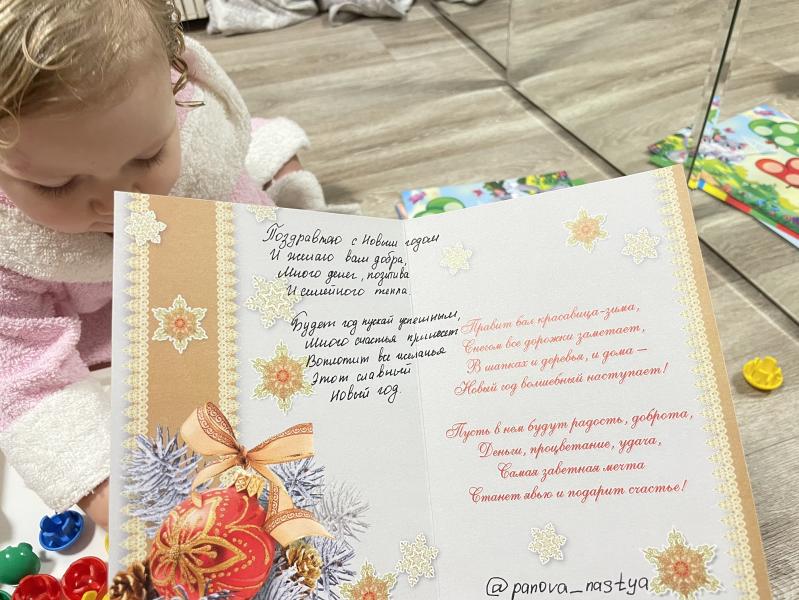 Поздравляю с Новым годом
И желаю вам добра,
Много денег, позитива
И семейного тепла.
Будет год пускай успешным,
Много счастья принесет
Воплотит все желанья
Этот славный
Новый год.
Правит бал красавица-зима,
Снегом все дорожки заметает,
В шапках и деревья, и дома –
Новый год волшебный наступает!
Пусть в нем будут радость, доброта,
Деньги, процветание, удача,
Самая заветная мечта
Станет явью и подарит счастье!
@panova_nastya